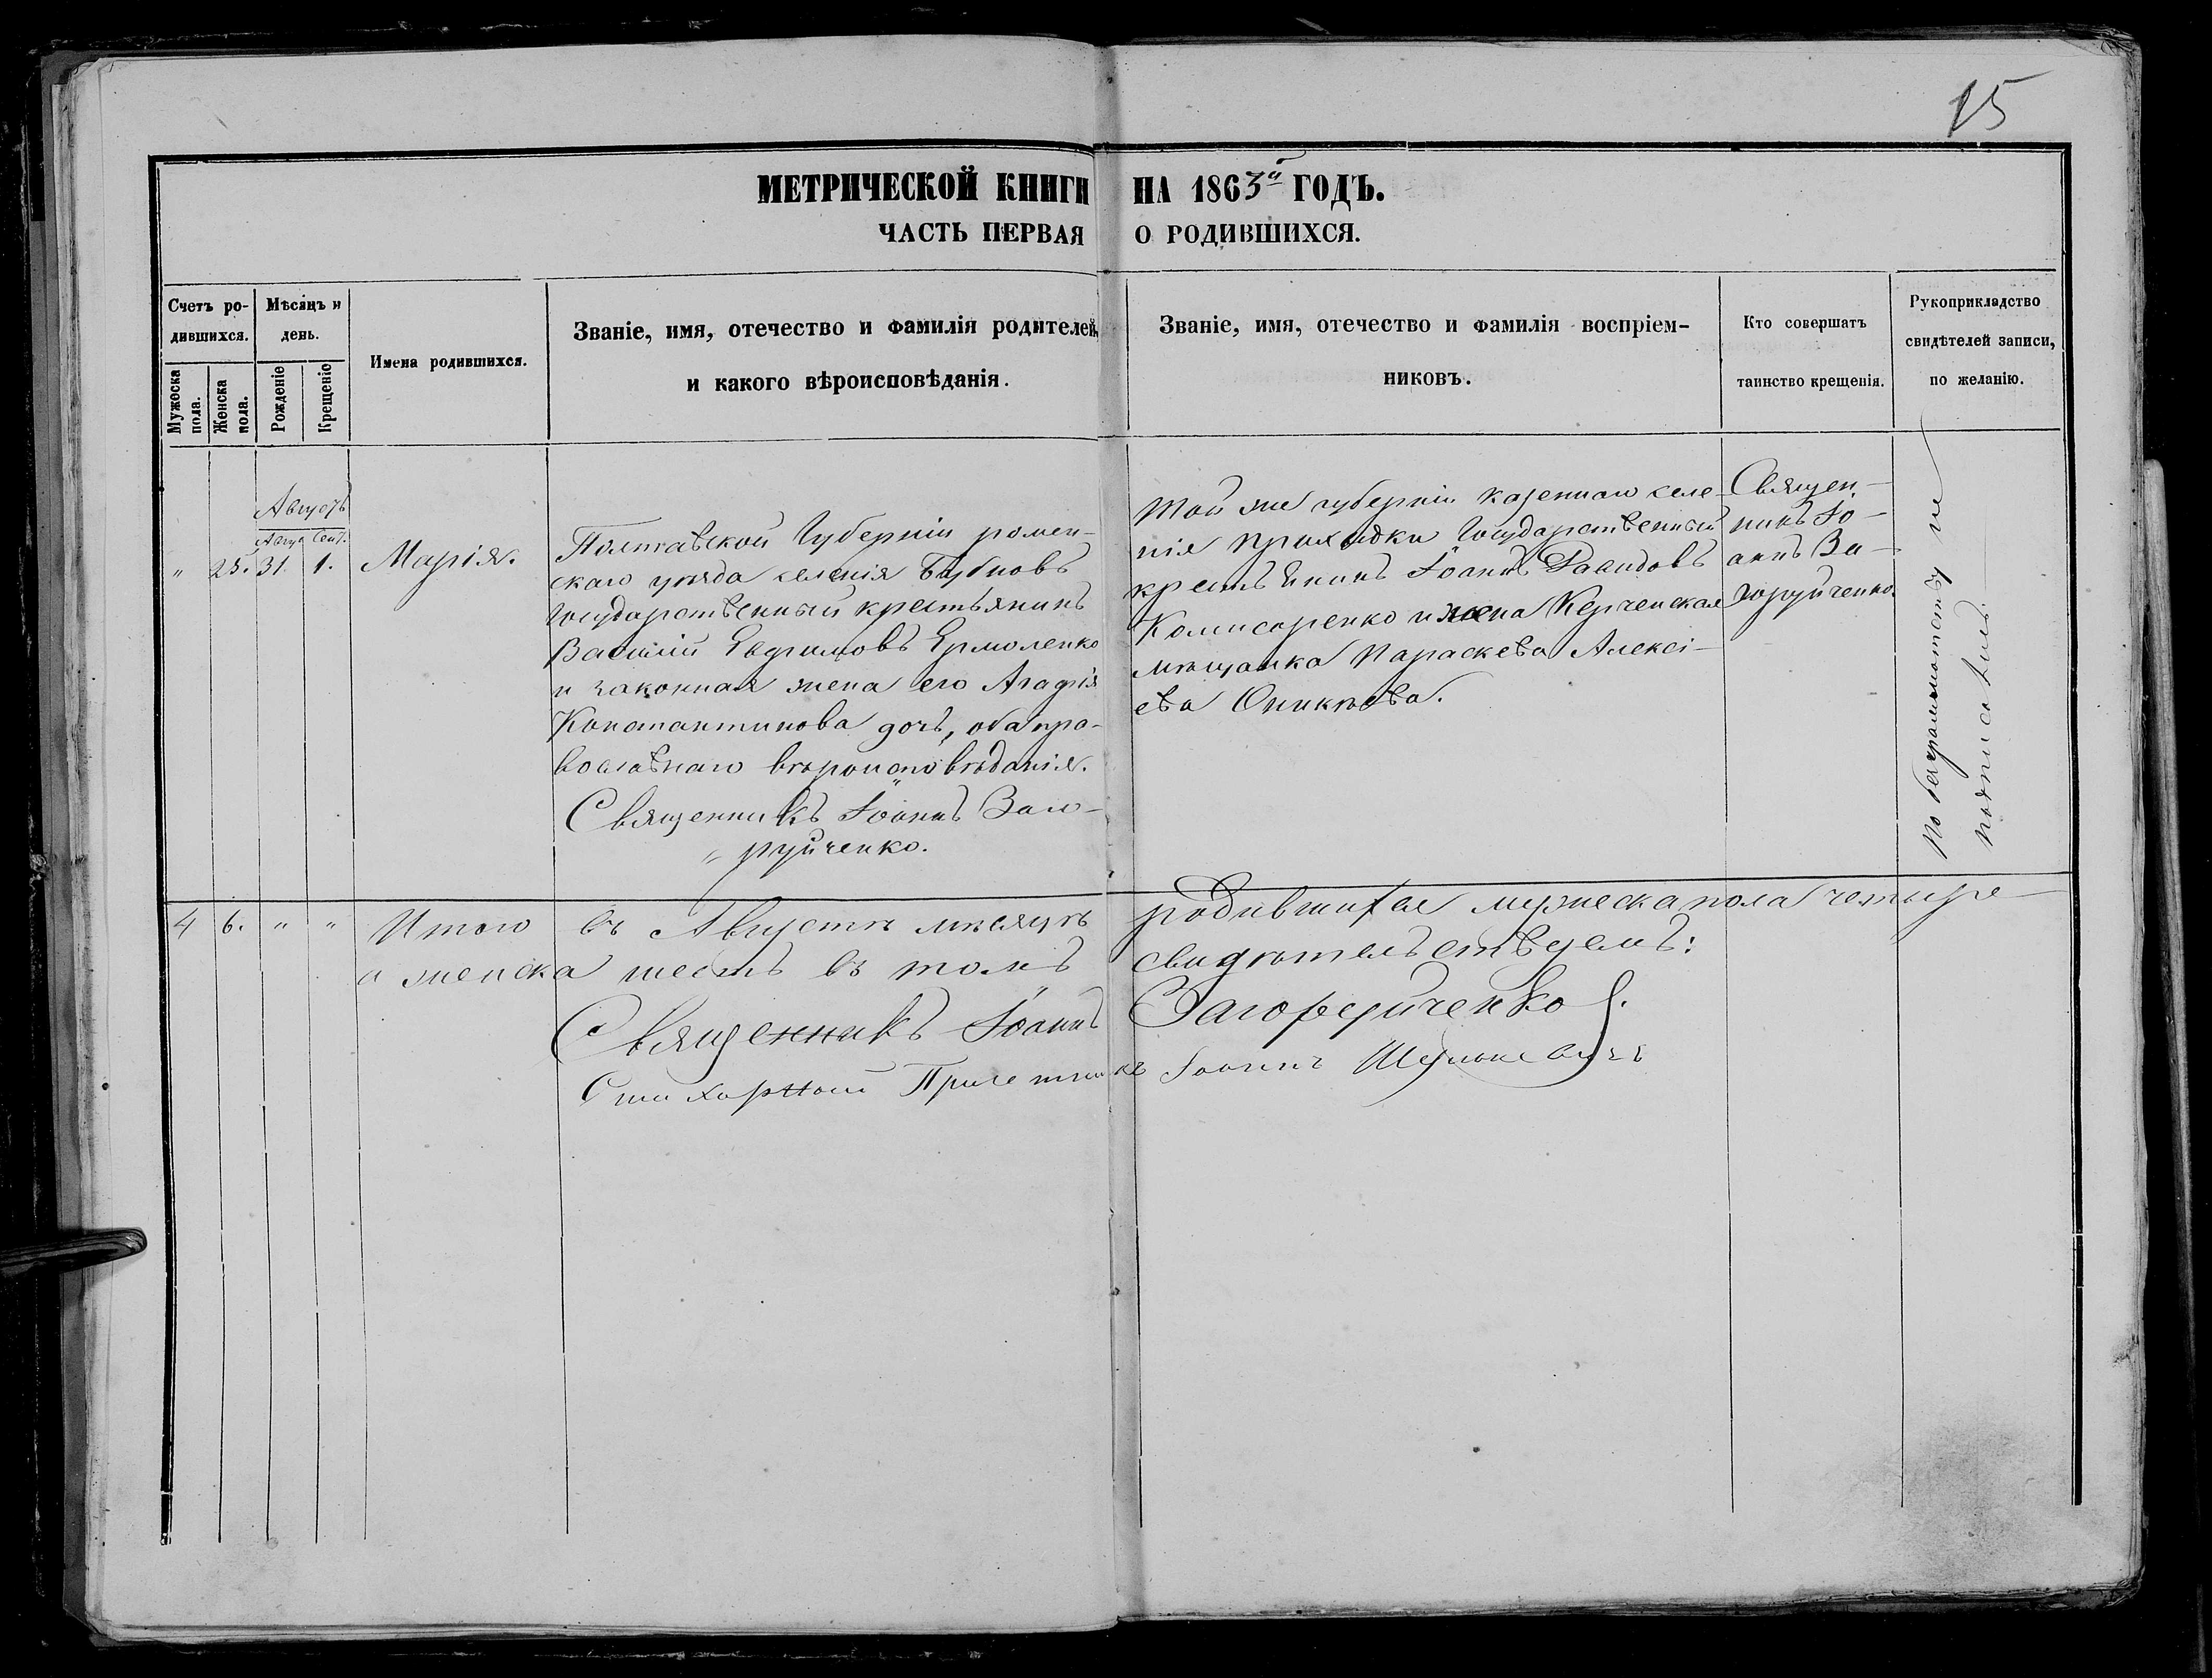 15
МЕТРИЧЕСКОЙ КНИГИ НА 1863й ГОДЪ.
ЧАСТЬ ПЕРВАЯ О РОДИВШИХСЯ.
Счетъ ро-
дившихся.
Мужеска пола.
Женска пола.
Мѣсяцъ и
день.
Рожденіе
Крещеніе
Имена родившихся.
Званіе, имя, отечество и фамилія родителей,
и какого вѣроисповѣданія.
Званіе, имя, отечество и фамилія воспріем-
никовъ.
Кто совершатъ
таинство крещенія.
Рукоприкладство
свидѣтелей записи,
по желанію.
Августъ
Авгу Сент.
" 25. 31. 1. Марія.
Полтавской Губерніи ромен-
скаго уѣзда селенія Бубновъ
Государственный крестьянинъ
Василій Евфимовъ Ермоленко
и законная жена его Агафія
Константинова дочь, оба пра-
вославнаго вѣроисповѣданія.
Священникъ Іоаннъ Заго-
руйченко.
Той же губерніи казеннаго селе-
нія Приходки Государственный
крестьянинъ Іоаннъ Давидовъ
Комисаренко и жена Керченская
мѣщанка Параскева Алексі-
ева Оникѣева.
Священ-
никъ Іо-
аннъ За-
горуйченко.
По безграмотству не
подписались.
4 6. " " Итого въ Августѣ мѣсяцѣ родившихся мужеска пола четыре
а женска шесть въ томъ свидѣтельствуемъ:
Священникъ Іоаннъ Загоруйченко
Стихарный Причетникъ Іоаннъ